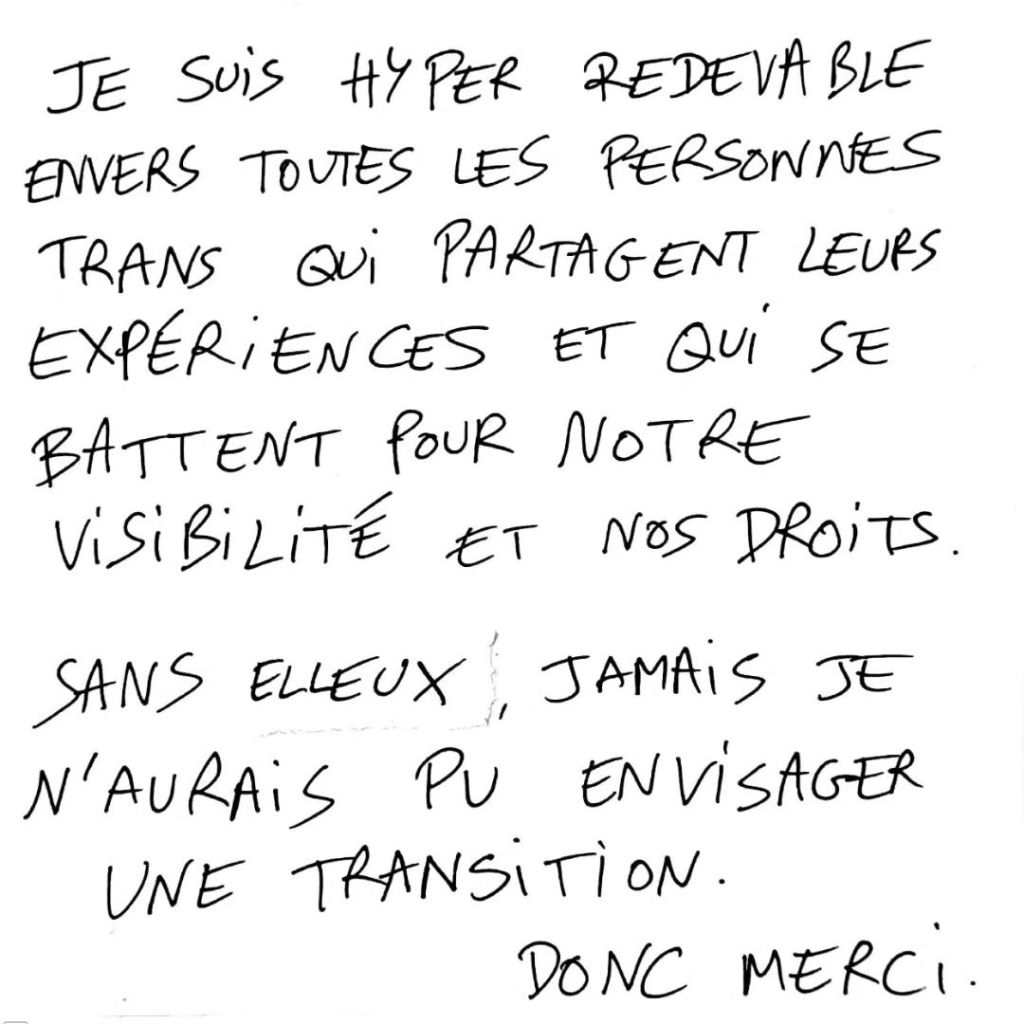 JE SUiS HYPER REDEVABLE
ENVERS TOUTES LES PERSONNES
TRANS QUi PARTAGENT LEURS
EXPÉRiENCES ET QUi SE
BATTENT POUR NOTRE
ViSiBiLiTÉ ET NOS DROiTS.
SANS ELLEUX, JAMAiS JE
N'AURAiS PU ENViSAGER
UNE TRANSiTiON.
DONC MERCi.